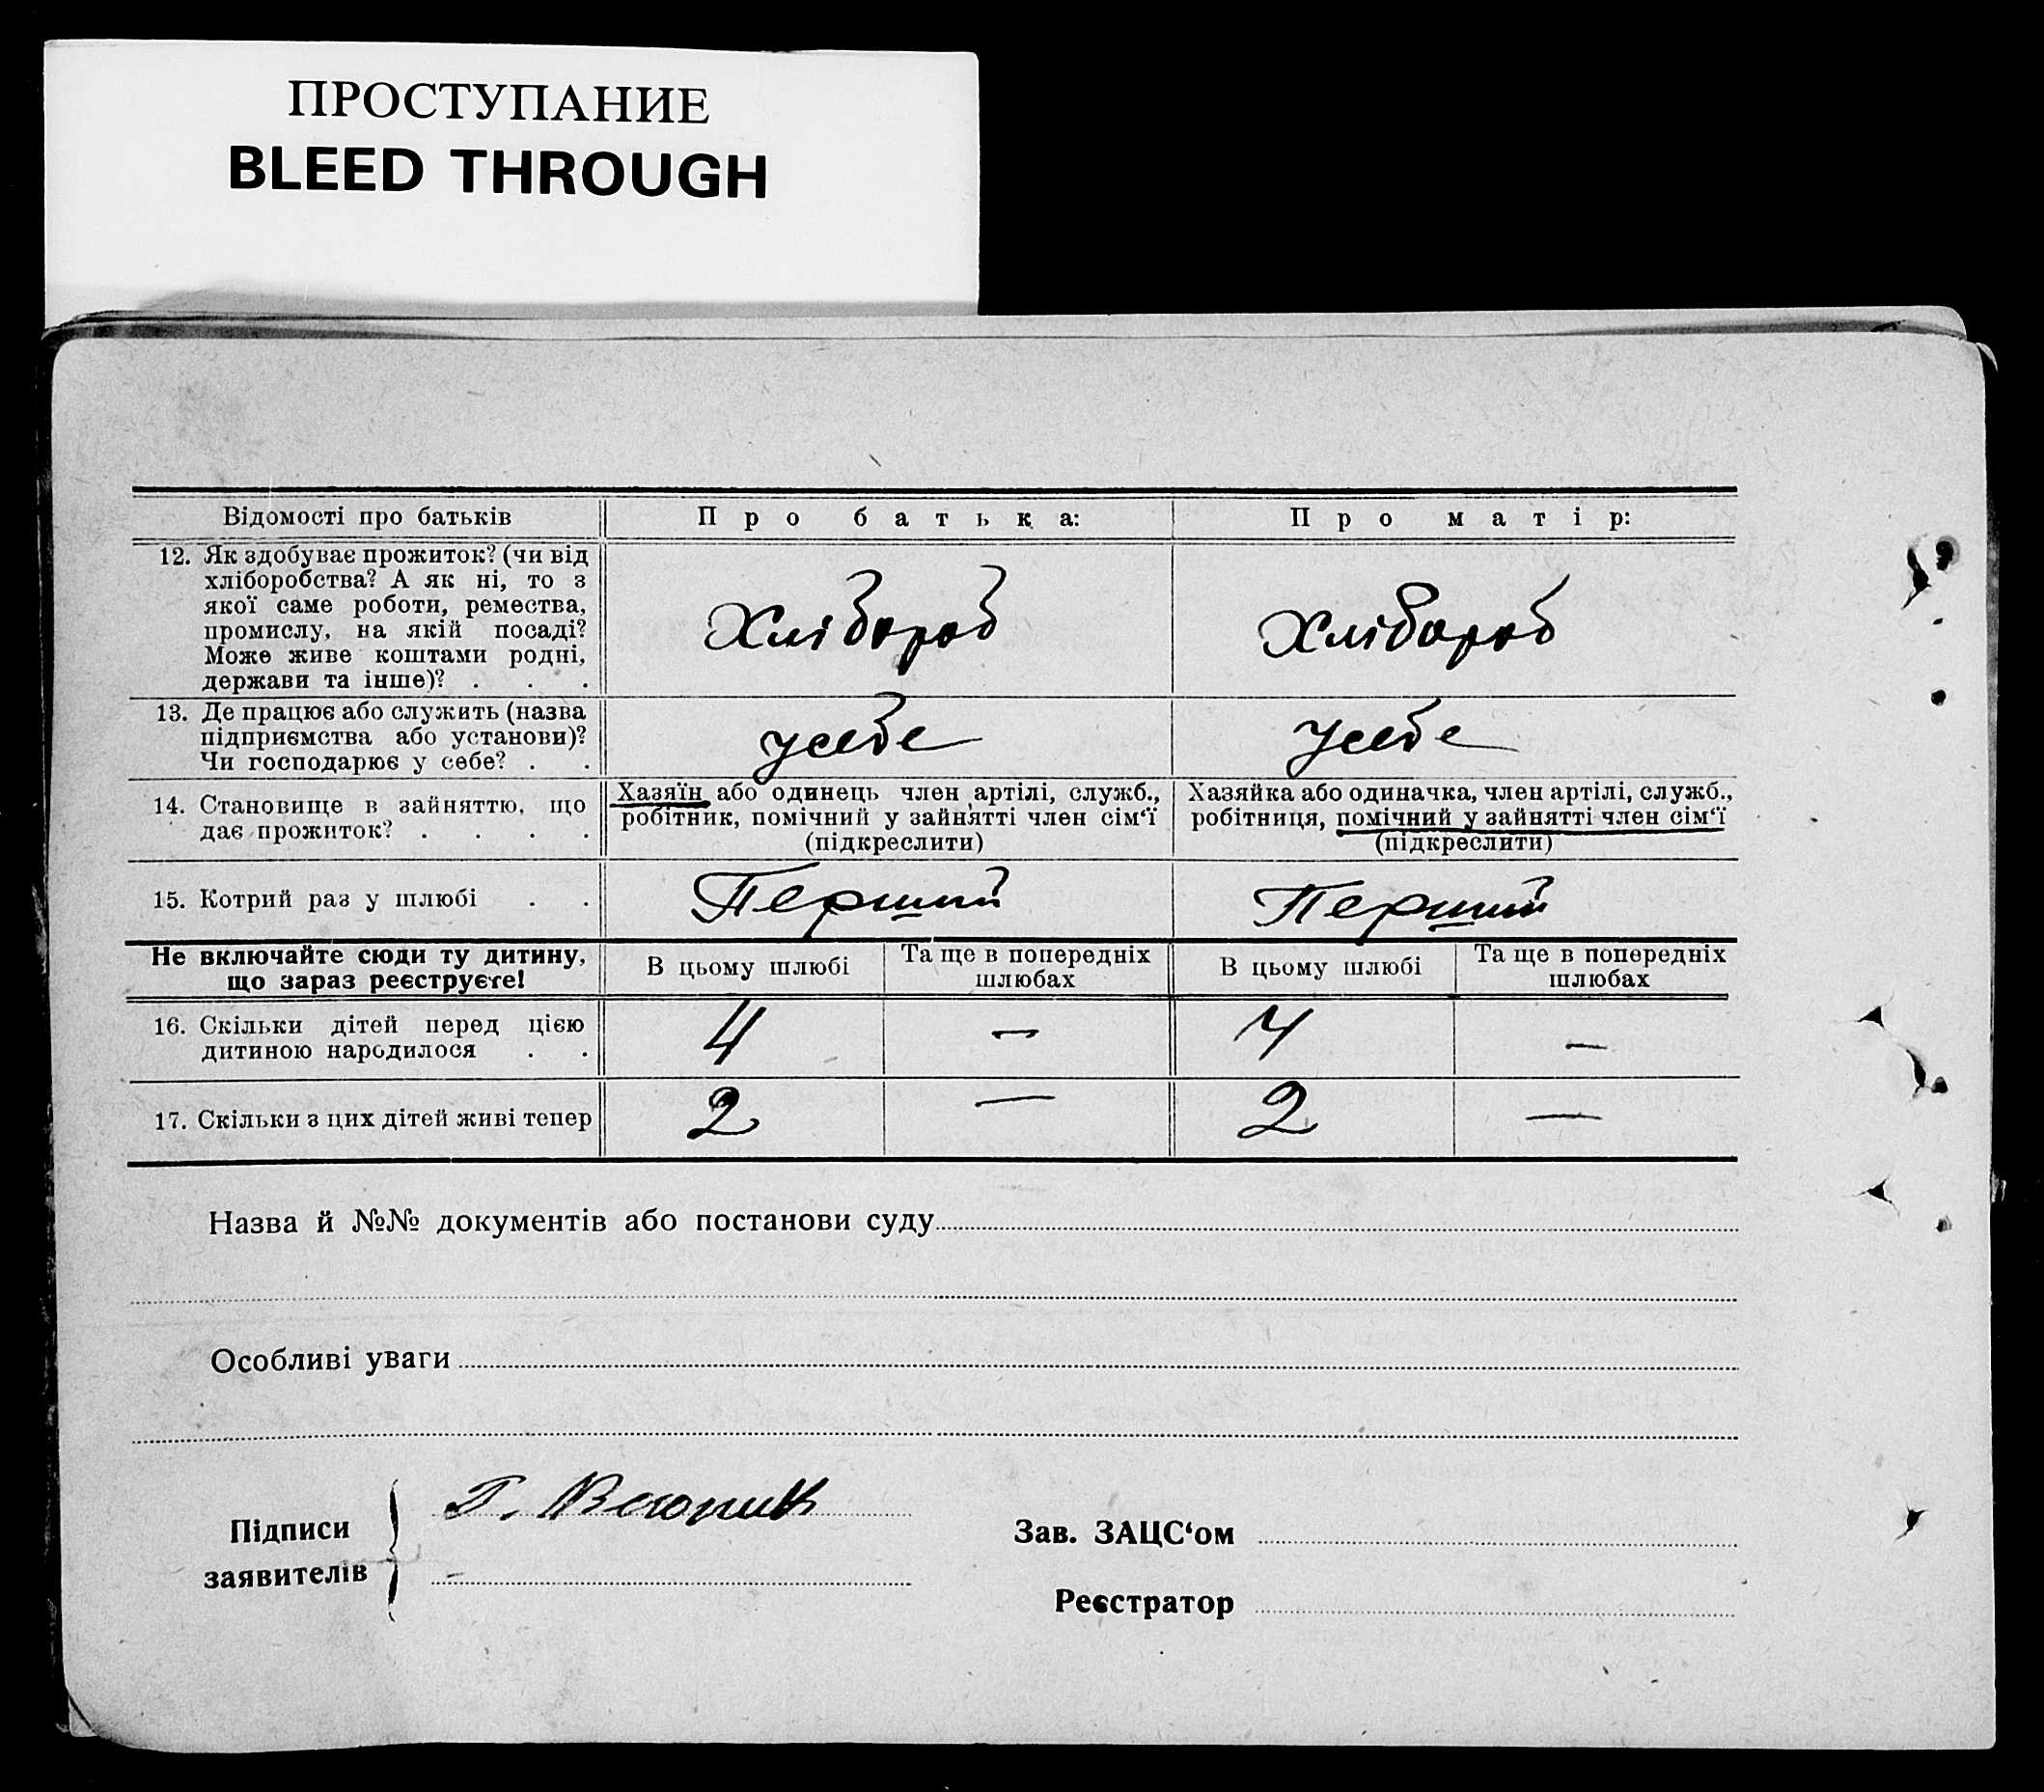 ПРОСТУПАНИЕ
BLEED THROUGH
Відомості про батьків
Про батька:
Про матір:
12. Як здобуває прожиток? (чи від
хліборобства? А як ні, то з
якої саме роботи, ремества,
промислу, на якій посаді?
Може живе коштами родні,
держави та інше)? . . .
Хлібороб
Хлібороб
13. Де працює або служить (назва
підприємства або установи)?
Чи господарює у себе? . .
у себе
у себе
14. Становище в зайняттю, що
дає прожиток? . . . .
Хазяїн або одинець член артілі, служб.,
робітник, помічний у зайнятті член сім‘ї
(підкреслити)
Хазяйка або одиначка, член артілі, служб.,
робітниця, помічний у зайнятті член сім‘ї
(підкреслити)
15. Котрий раз у шлюбі . .
Перший
Перший
Не включайте сюди ту дитину,
що зараз реєструєте!
В цьому шлюбі
Та ще в попередніх
шлюбах
В цьому шлюбі
Та ще в попередніх
шлюбах
16. Скільки дітей перед цією
дитиною народилося . .
4
—
4
—
17. Скільки з цих дітей живі тепер
2
—
2
—
Назва й №№ документів або постанови суду
Особливі уваги
Підписи
заявителів
Зав. ЗАЦС‘ом
Реєстратор